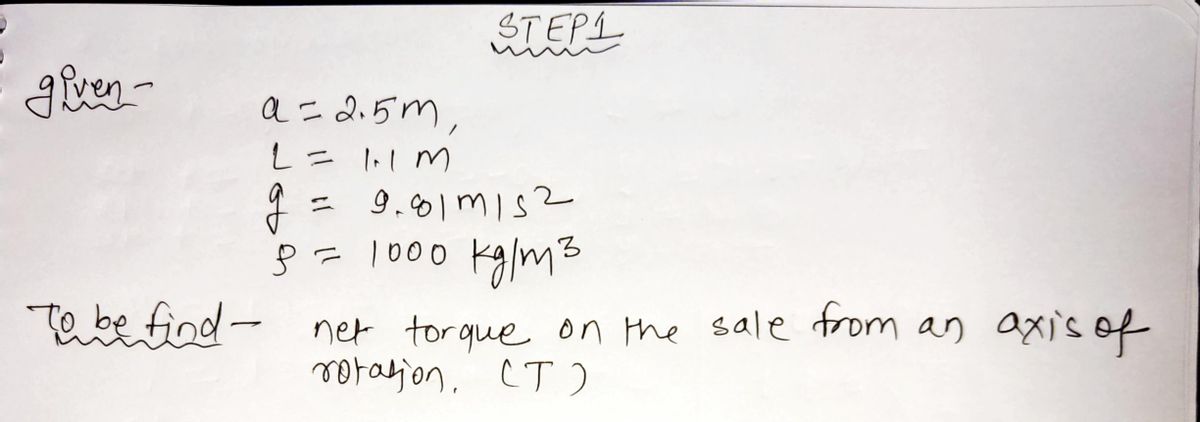 STEP1
given-
a = 2.5m,
L = 1.1 m
g = 9.81m/s2
ρ = 1000 kg/m3
To be find - net torque on the sale from an axis of
rotation. (T)